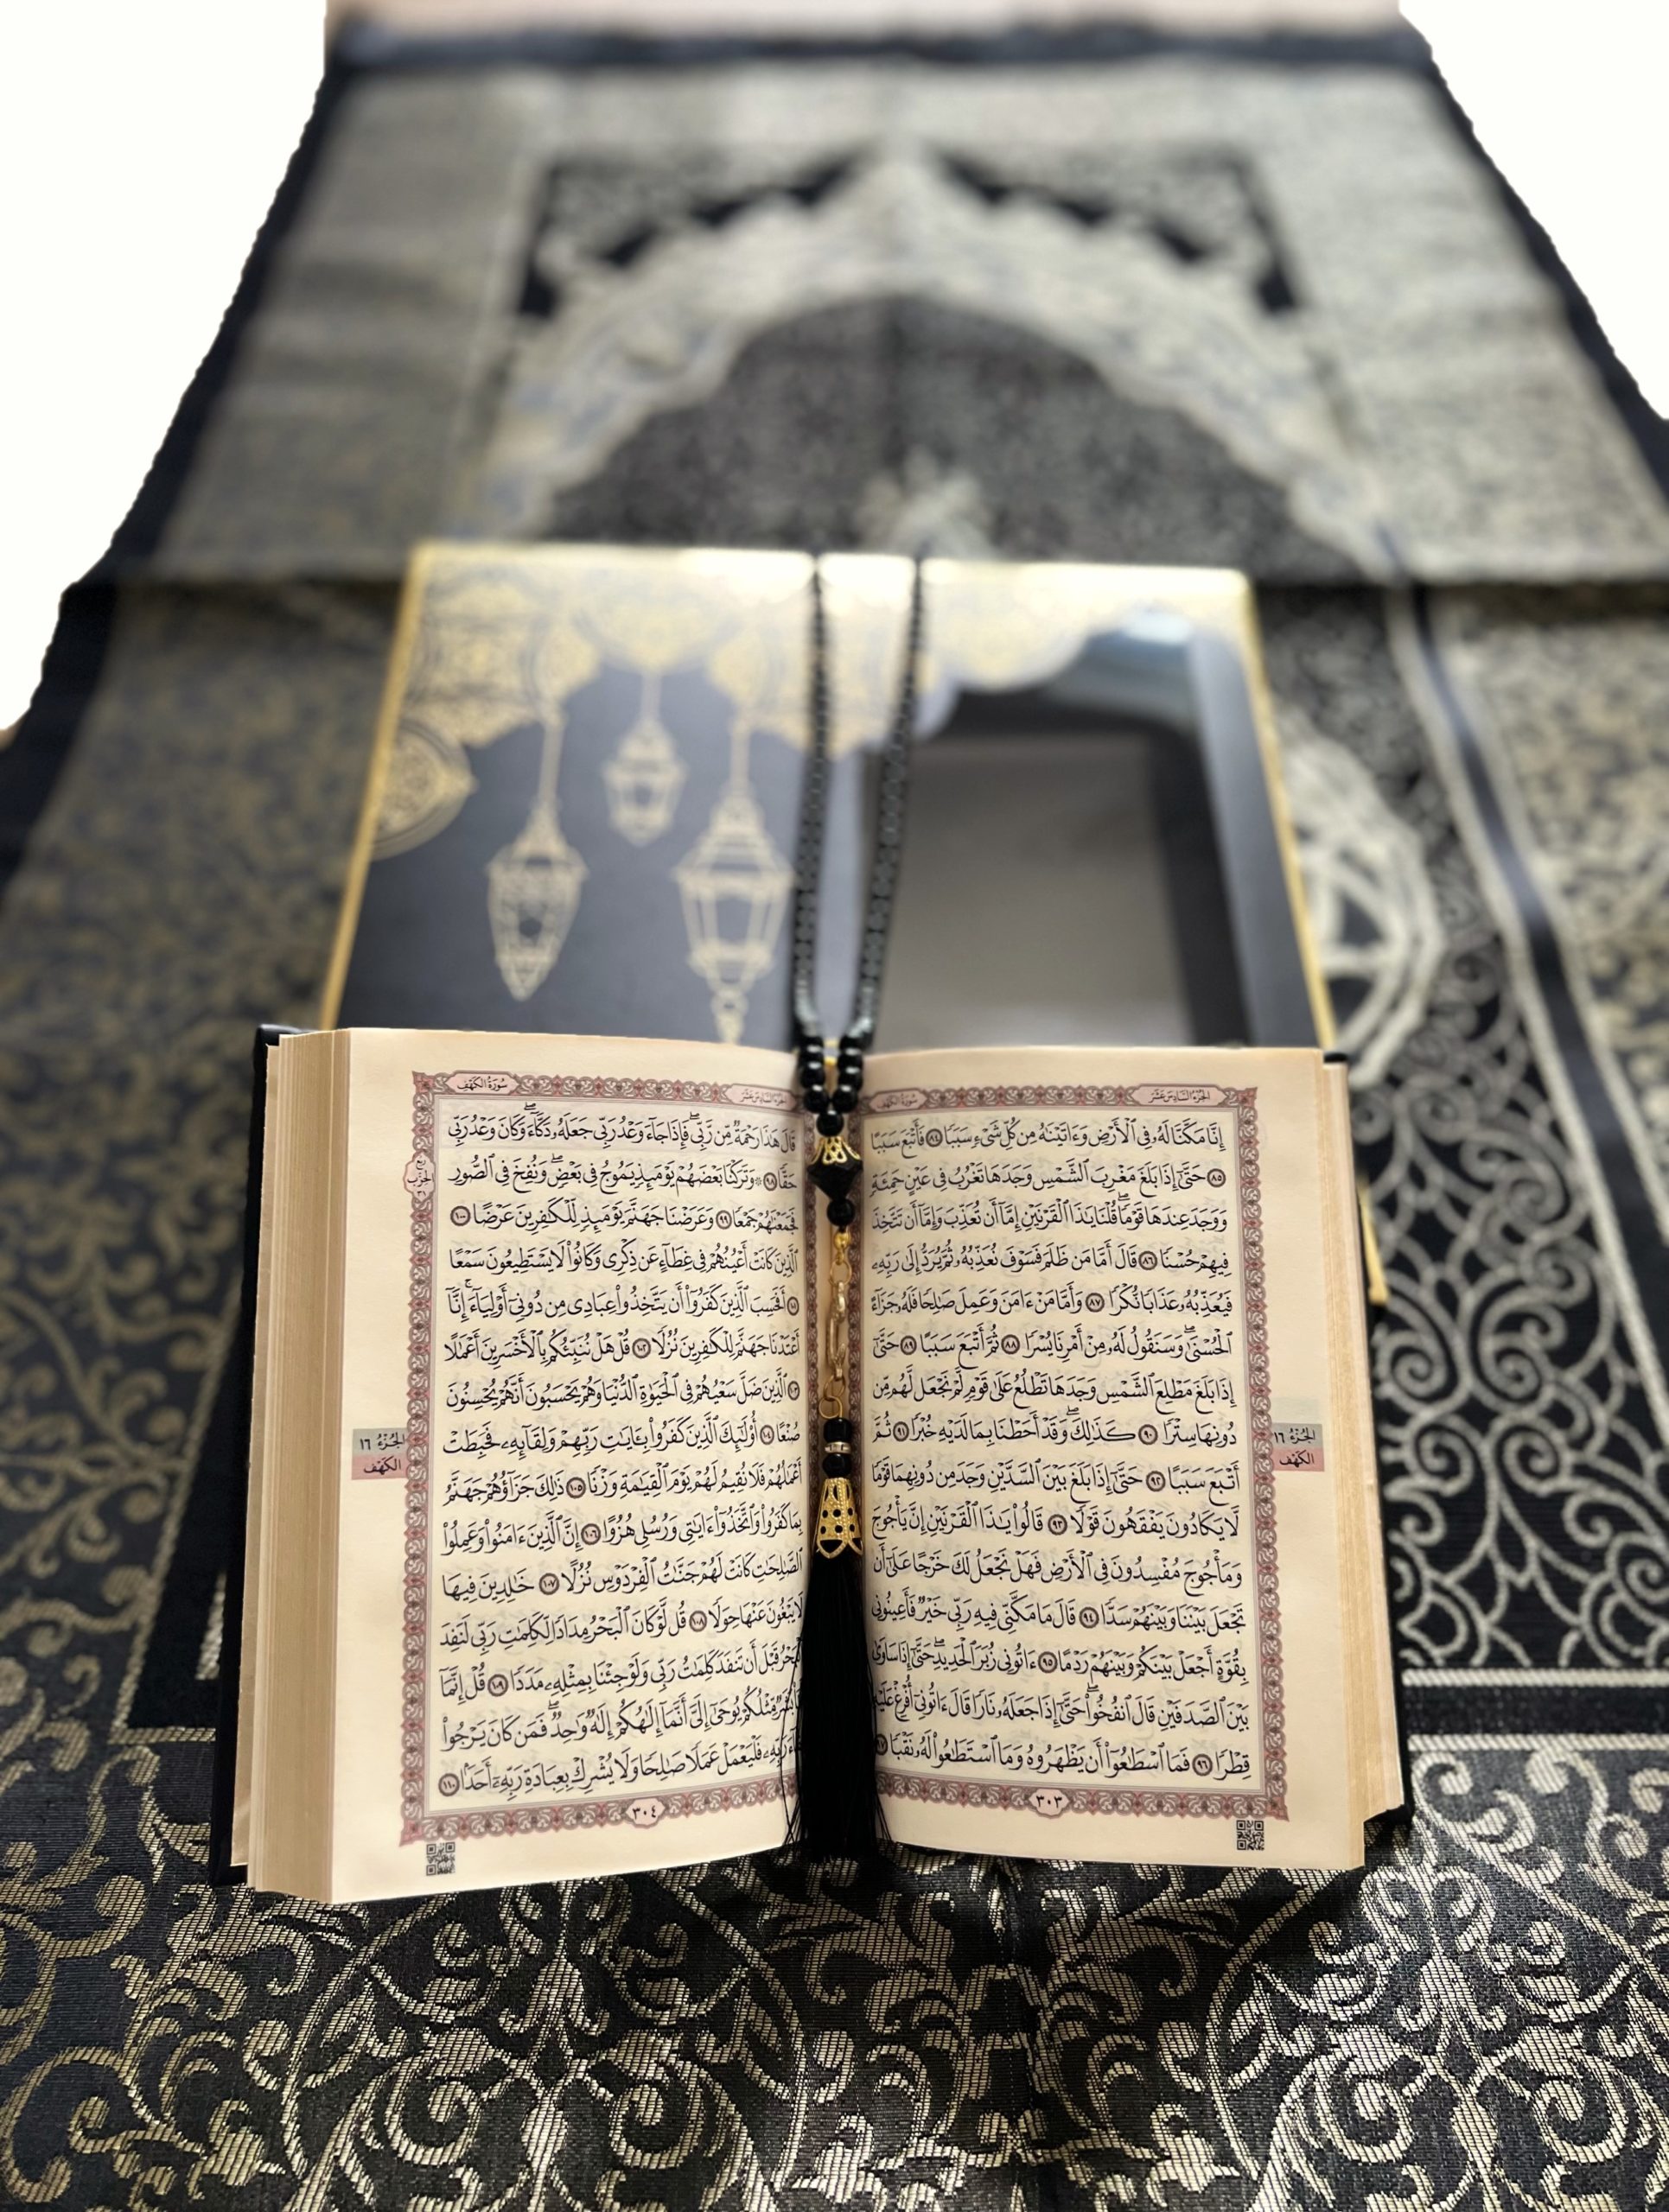 الجزء السادس عشر
سورة الكهف
إِنَّا مَكَّنَّا لَهُۥ فِى ٱلْأَرْضِ وَءَاتَيْنَٰهُ مِن كُلِّ شَىْءٍ سَبَبًا ٨٤ فَأَتْبَعَ سَبَبًا
٨٥ حَتَّىٰٓ إِذَا بَلَغَ مَغْرِبَ ٱلشَّمْسِ وَجَدَهَا تَغْرُبُ فِى عَيْنٍ حَمِئَةٍ
وَوَجَدَ عِندَهَا قَوْمًا ۗ قُلْنَا يَٰذَا ٱلْقَرْنَيْنِ إِمَّآ أَن تُعَذِّبَ وَإِمَّآ أَن تَتَّخِذَ
فِيهِمْ حُسْنًا ٨٦ قَالَ أَمَّا مَن ظَلَمَ فَسَوْفَ نُعَذِّبُهُۥ ثُمَّ يُرَدُّ إِلَىٰ رَبِّهِۦ
فَيُعَذِّبُهُۥ عَذَابًا نُّكْرًا ٨٧ وَأَمَّا مَنْ ءَامَنَ وَعَمِلَ صَٰلِحًا فَلَهُۥ جَزَآءً
ٱلْحُسْنَىٰ ۖ وَسَنَقُولُ لَهُۥ مِنْ أَمْرِنَا يُسْرًا ٨٨ ثُمَّ أَتْبَعَ سَبَبًا ٨٩ حَتَّىٰٓ
إِذَا بَلَغَ مَطْلِعَ ٱلشَّمْسِ وَجَدَهَا تَطْلُعُ عَلَىٰ قَوْمٍ لَّمْ نَجْعَل لَّهُم مِّن
دُونِهَا سِتْرًا ٩٠ كَذَٰلِكَ ۖ وَقَدْ أَحَطْنَا بِمَا لَدَيْهِ خُبْرًا ٩١ ثُمَّ
أَتْبَعَ سَبَبًا ٩٢ حَتَّىٰٓ إِذَا بَلَغَ بَيْنَ ٱلسَّدَّيْنِ وَجَدَ مِن دُونِهِمَا قَوْمًا
لَّا يَكَادُونَ يَفْقَهُونَ قَوْلًا ٩٣ قَالُوا۟ يَٰذَا ٱلْقَرْنَيْنِ إِنَّ يَأْجُوجَ
وَمَأْجُوجَ مُفْسِدُونَ فِى ٱلْأَرْضِ فَهَلْ نَجْعَلُ لَكَ خَرْجًا عَلَىٰٓ أَن
تَجْعَلَ بَيْنَنَا وَبَيْنَهُمْ سَدًّا ٩٤ قَالَ مَا مَكَّنِّى فِيهِ رَبِّى خَيْرٌ فَأَعِينُونِى
بِقُوَّةٍ أَجْعَلْ بَيْنَكُمْ وَبَيْنَهُمْ رَدْمًا ٩٥ ءَاتُونِى زُبَرَ ٱلْحَدِيدِ ۖ حَتَّىٰٓ إِذَا سَاوَىٰ
بَيْنَ ٱلصَّدَفَيْنِ قَالَ ٱنفُخُوا۟ ۖ حَتَّىٰٓ إِذَا جَعَلَهُۥ نَارًا قَالَ ءَاتُونِىٓ أُفْرِغْ عَلَيْهِ
قِطْرًا ٩٦ فَمَا ٱسْطَٰعُوٓا۟ أَن يَظْهَرُوهُ وَمَا ٱسْتَطَٰعُوا۟ لَهُۥ نَقْبًا
الجزء ١٦
الكهف
٣٠٣
الجزء السادس عشر
سورة الكهف
قَالَ هَٰذَا رَحْمَةٌ مِّن رَّبِّى ۖ فَإِذَا جَآءَ وَعْدُ رَبِّى جَعَلَهُۥ دَكَّآءَ ۖ وَكَانَ وَعْدُ رَبِّى
حَقًّا ٩٨ ۞ وَتَرَكْنَا بَعْضَهُمْ يَوْمَئِذٍ يَمُوجُ فِى بَعْضٍ ۖ وَنُفِخَ فِى ٱلصُّورِ
فَجَمَعْنَٰهُمْ جَمْعًا ٩٩ وَعَرَضْنَا جَهَنَّمَ يَوْمَئِذٍ لِّلْكَٰفِرِينَ عَرْضًا ١٠٠
ٱلَّذِينَ كَانَتْ أَعْيُنُهُمْ فِى غِطَآءٍ عَن ذِكْرِى وَكَانُوا۟ لَا يَسْتَطِيعُونَ سَمْعًا
١٠١ أَفَحَسِبَ ٱلَّذِينَ كَفَرُوٓا۟ أَن يَتَّخِذُوا۟ عِبَادِى مِن دُونِىٓ أَوْلِيَآءَ ۚ إِنَّآ
أَعْتَدْنَا جَهَنَّمَ لِلْكَٰفِرِينَ نُزُلًا ١٠٢ قُلْ هَلْ نُنَبِّئُكُم بِٱلْأَخْسَرِينَ أَعْمَٰلًا
١٠٣ ٱلَّذِينَ ضَلَّ سَعْيُهُمْ فِى ٱلْحَيَوٰةِ ٱلدُّنْيَا وَهُمْ يَحْسَبُونَ أَنَّهُمْ يُحْسِنُونَ
صُنْعًا ١٠٤ أُو۟لَٰٓئِكَ ٱلَّذِينَ كَفَرُوا۟ بِـَٔايَٰتِ رَبِّهِمْ وَلِقَآئِهِۦ فَحَبِطَتْ
أَعْمَٰلُهُمْ فَلَا نُقِيمُ لَهُمْ يَوْمَ ٱلْقِيَٰمَةِ وَزْنًا ١٠٥ ذَٰلِكَ جَزَآؤُهُمْ جَهَنَّمُ
بِمَا كَفَرُوا۟ وَٱتَّخَذُوٓا۟ ءَايَٰتِى وَرُسُلِى هُزُوًا ١٠٦ إِنَّ ٱلَّذِينَ ءَامَنُوا۟ وَعَمِلُوا۟
ٱلصَّٰلِحَٰتِ كَانَتْ لَهُمْ جَنَّٰتُ ٱلْفِرْدَوْسِ نُزُلًا ١٠٧ خَٰلِدِينَ فِيهَا
لَا يَبْغُونَ عَنْهَا حِوَلًا ١٠٨ قُل لَّوْ كَانَ ٱلْبَحْرُ مِدَادًا لِّكَلِمَٰتِ رَبِّى لَنَفِدَ
ٱلْبَحْرُ قَبْلَ أَن تَنفَدَ كَلِمَٰتُ رَبِّى وَلَوْ جِئْنَا بِمِثْلِهِۦ مَدَدًا ١٠٩ قُلْ إِنَّمَآ
مِّثْلُكُمْ يُوحَىٰٓ إِلَىَّ أَنَّمَآ إِلَٰهُكُمْ إِلَٰهٌ وَٰحِدٌ ۖ فَمَن كَانَ يَرْجُوا۟
رَبِّهِۦ فَلْيَعْمَلْ عَمَلًا صَٰلِحًا وَلَا يُشْرِكْ بِعِبَادَةِ رَبِّهِۦٓ أَحَدًۢا ١١٠
ربع
الحزب
٣١
الجزء ١٦
الكهف
٣٠٤